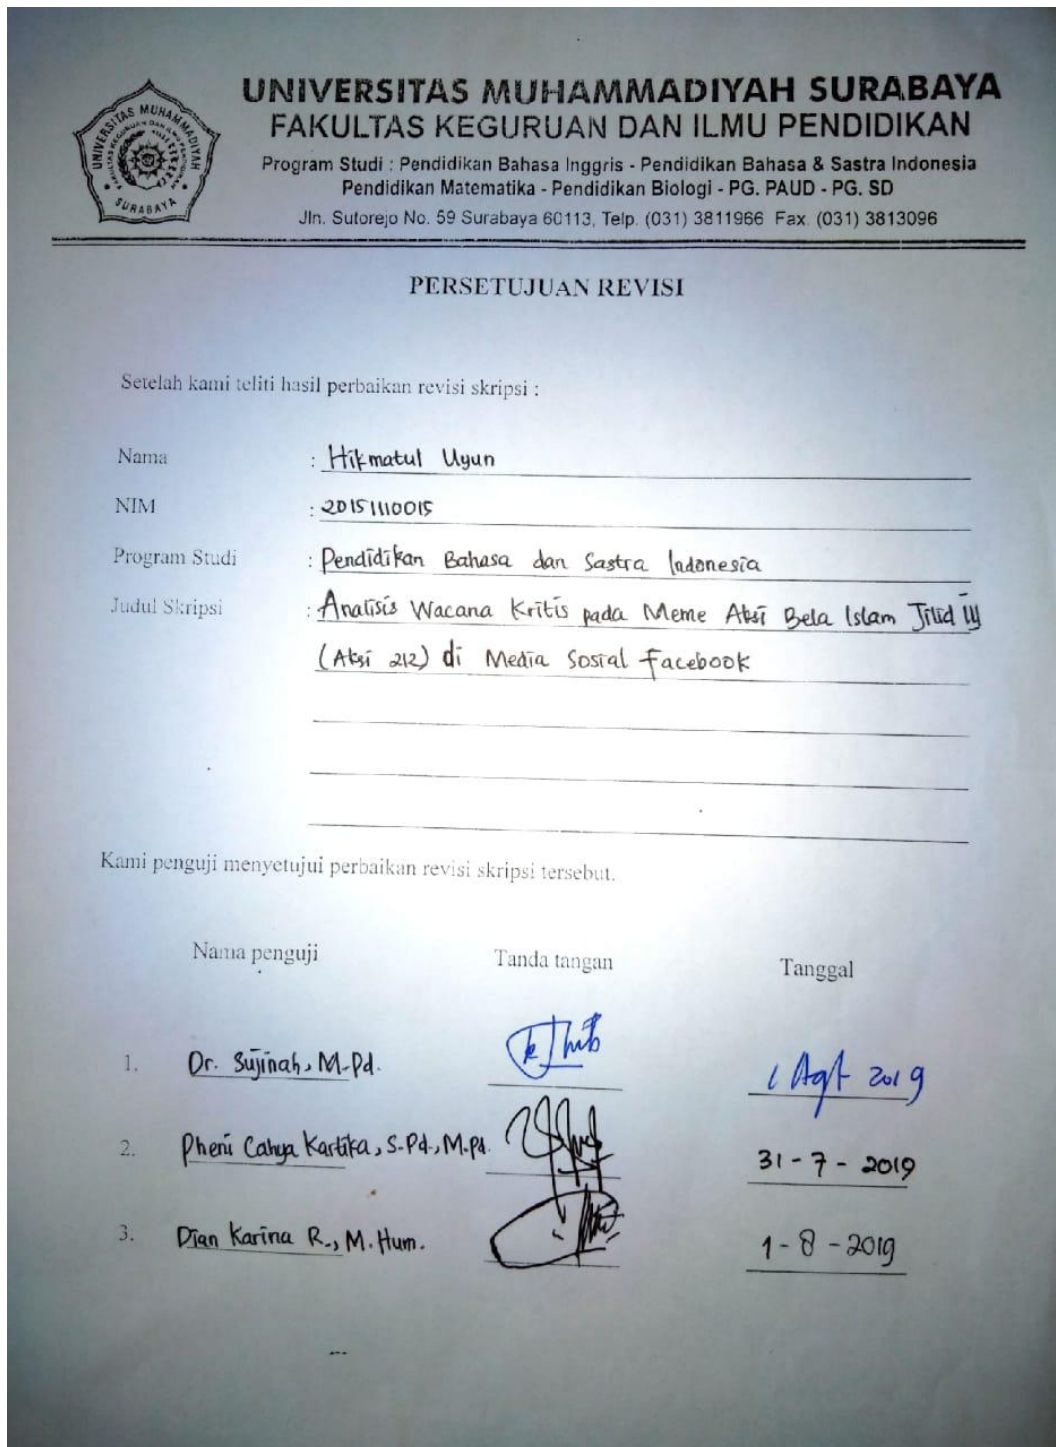 UNIVERSITAS MUHAMMADIYAH SURABAYA
FAKULTAS KEGURUAN DAN ILMU PENDIDIKAN
Program Studi : Pendidikan Bahasa Inggris - Pendidikan Bahasa & Sastra Indonesia
Pendidikan Matematika - Pendidikan Biologi - PG. PAUD - PG. SD
Jln. Sutorejo No. 59 Surabaya 60113, Telp. (031) 3811966 Fax. (031) 3813096
UNIVERSITAS MUHAMMADIYAH
SURABAYA
PERSETUJUAN REVISI
Setelah kami teliti hasil perbaikan revisi skripsi :
Nama : Hikmatul Uyun
NIM : 20151110015
Program Studi : Pendidikan Bahasa dan Sastra Indonesia
Judul Skripsi : Analisis Wacana Kritis pada Meme Aksi Bela Islam Jilid
(Aksi 212) di Media Sosial Facebook
Kami penguji menyetujui perbaikan revisi skripsi tersebut.
Nama penguji Tanda tangan Tanggal
1. Dr. Sujinah, M.Pd. 1 Agt 2019
2. Pheni Cahya Kartika, S.Pd., M.Pd. 31 - 7 - 2019
3. Dian Karina R., M. Hum. 1 - 8 - 2019